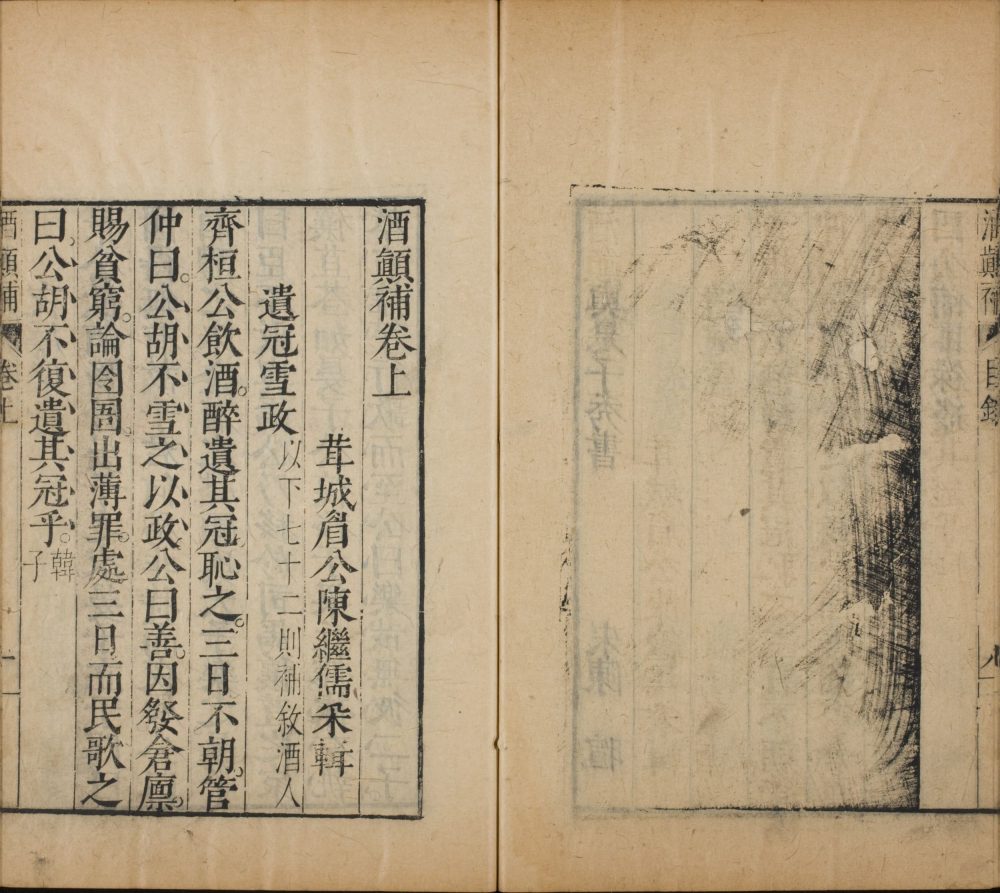 酒顛補
目錄
酒顛補卷上
茸城眉公陳繼儒采輯
遺冠雪政以下七十二則補敘酒人
齊桓公飲酒。醉遺其冠。恥之。三日不朝。管
仲曰。公胡不雪之以政。公曰善。因發倉廩。
賜貧窮。論囹圄。出薄罪。處三日而民歌之
曰。公胡不復遺其冠乎。韓子
酒顛補
卷上
一